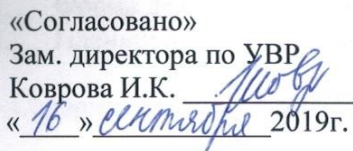 «Согласовано»
Зам. директора по УВР
Коврова И.К.
«16» сентября 2019г.